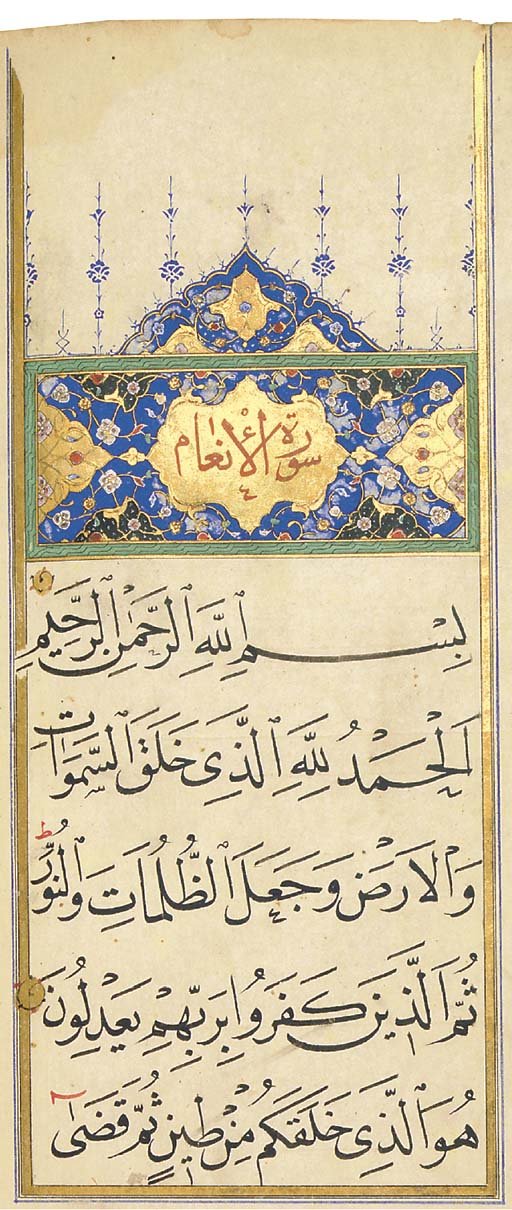 سورة الأنعام
بِسْمِ اللهِ الرَّحْمٰنِ الرَّحِيمِ
اَلْحَمْدُ لِلّٰهِ الَّذِى خَلَقَ السَّمٰوَاتِ
وَالْاَرْضَ وَجَعَلَ الظُّلُمَاتِ وَالنُّورَ ط
ثُمَّ الَّذِينَ كَفَرُوا بِرَبِّهِمْ يَعْدِلُونَ
هُوَ الَّذِى خَلَقَكُمْ مِنْ طِينٍ ثُمَّ قَضٰى